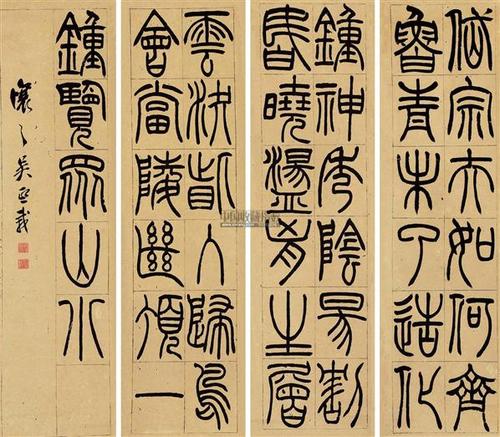 岱宗夫如何齊
魯青未了造化
鍾神秀陰昜割
昏曉盪胷生層
雲決眥入歸鳥
會當陵絕頂一
鍾覽眾山小
讓之吳熙載
中国收藏热线